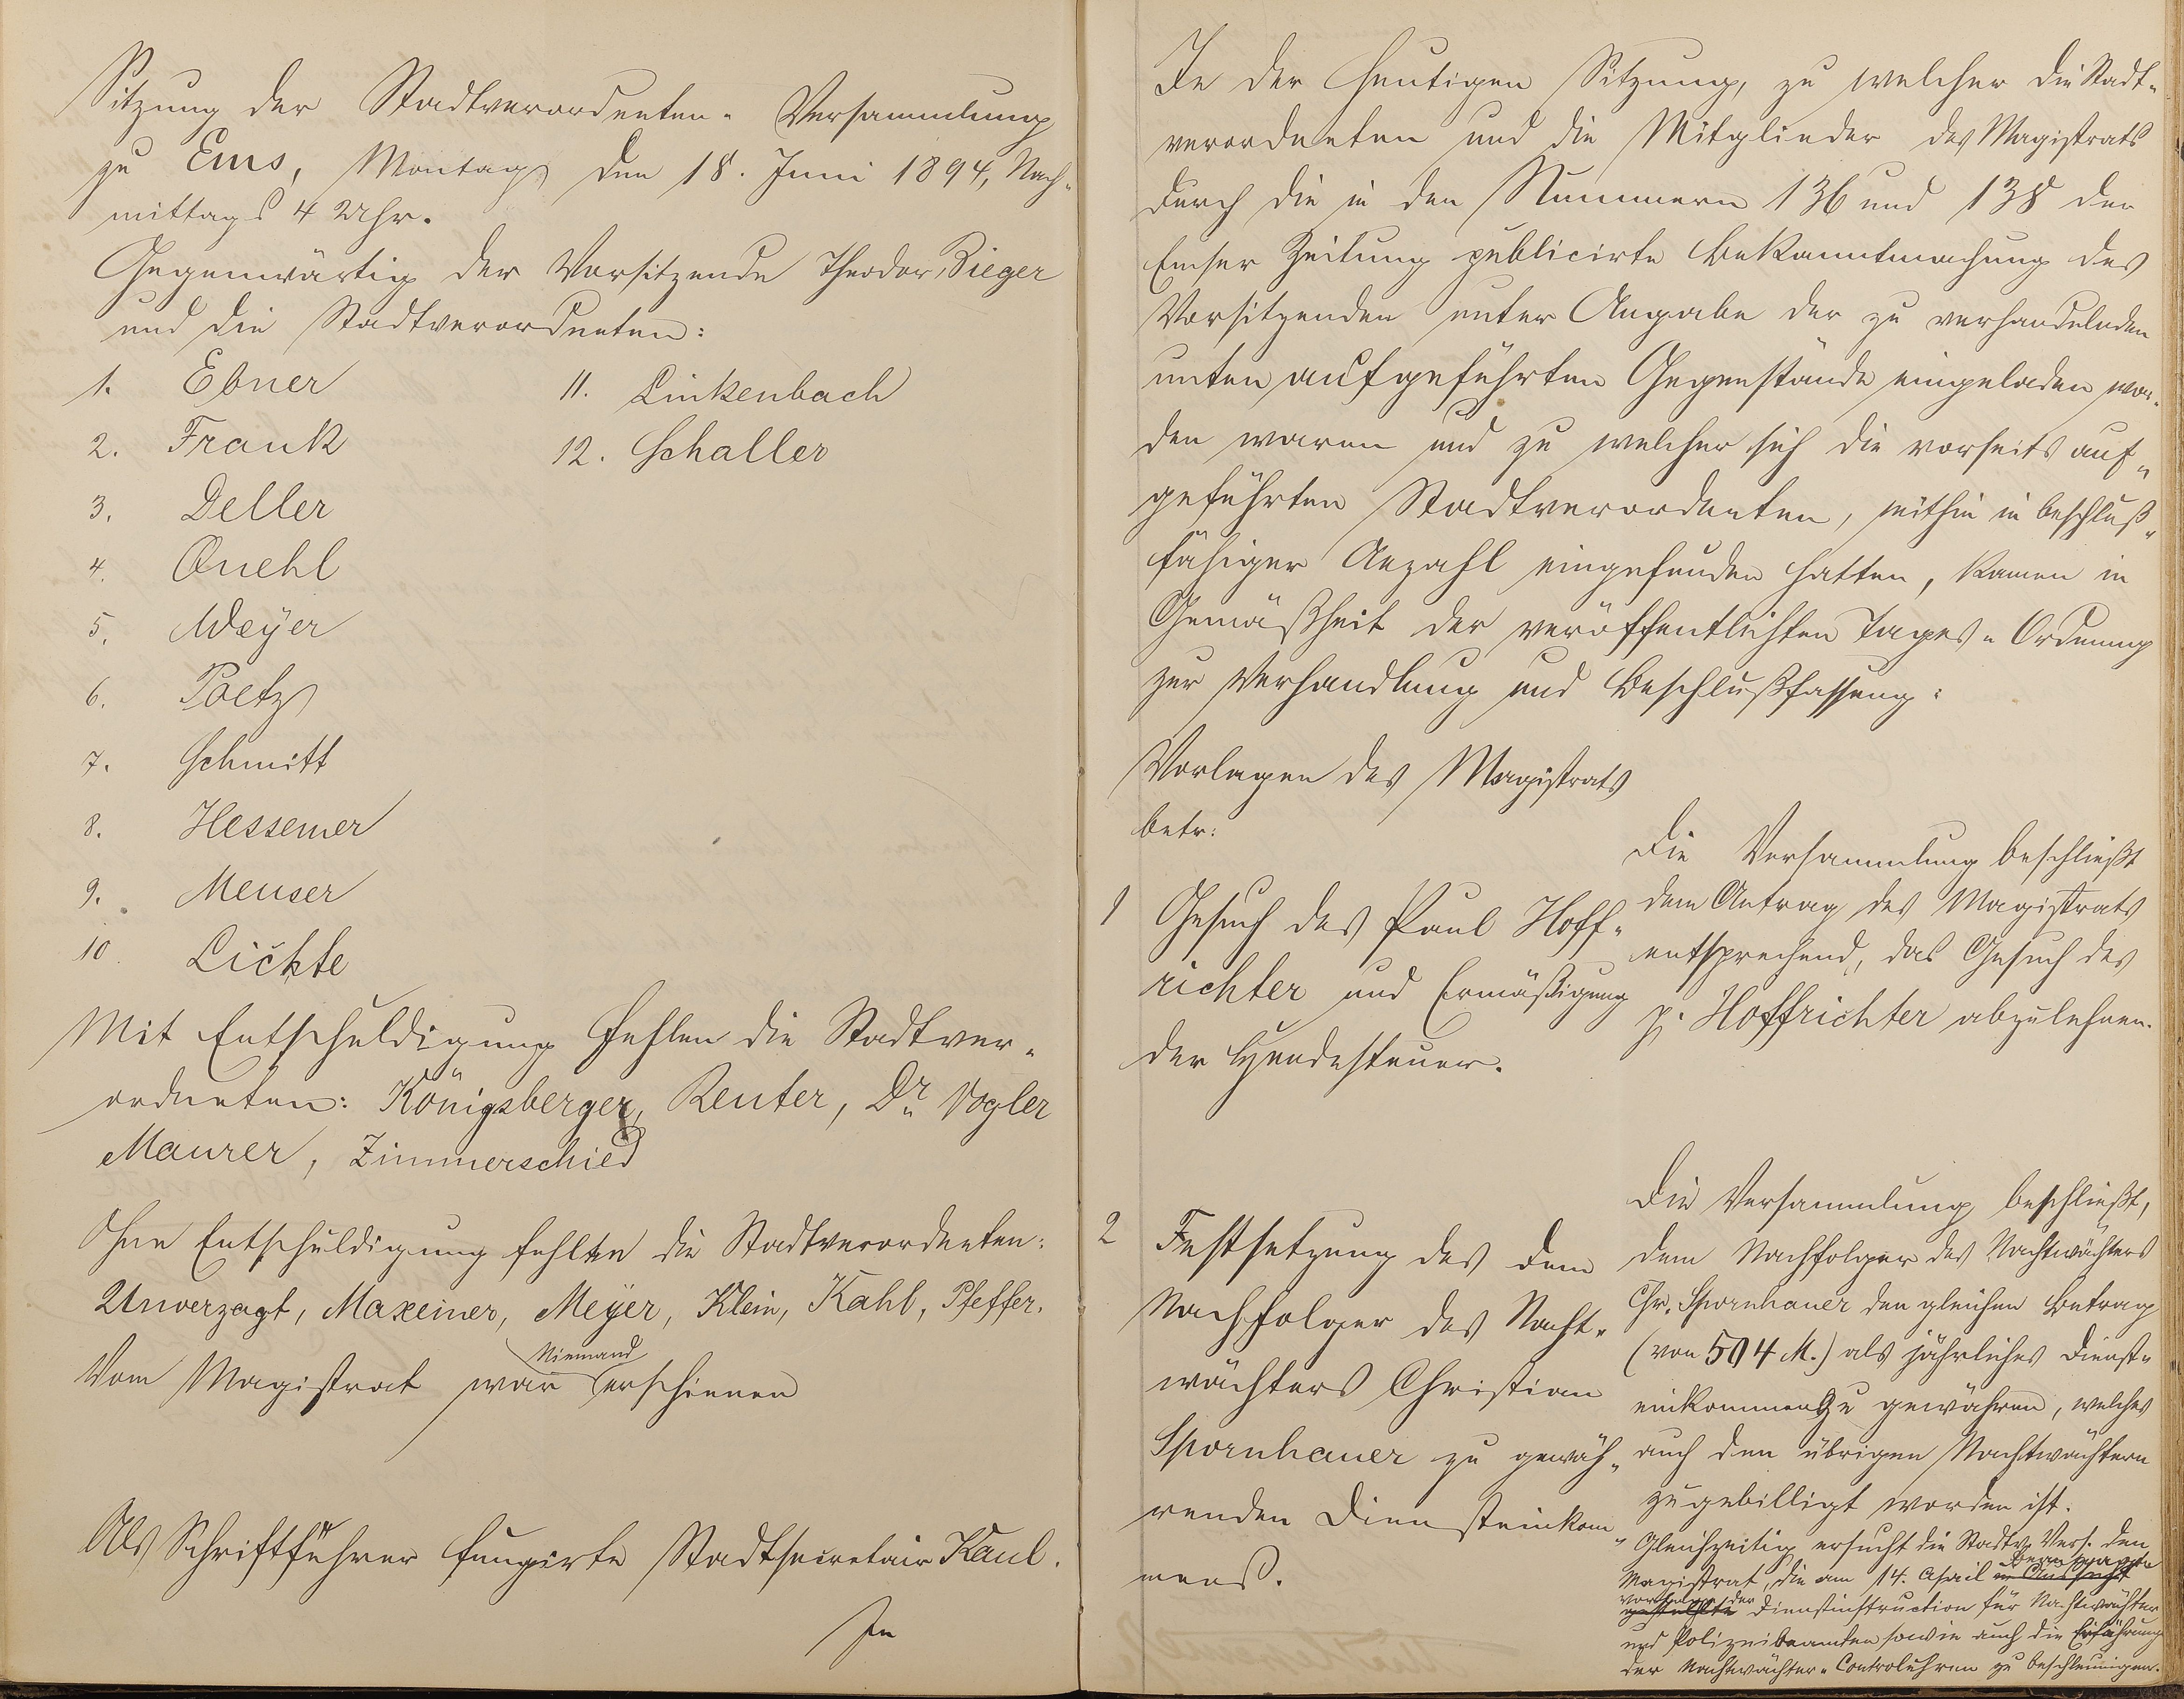 Sitzung der Stadtverordneten-Versammlung
zu Ems, Montag den 18. Juni 1894, Nach-
mittags 4 Uhr.
Gegenwärtig der Vorsitzende Theodor Bieger
und die Stadtverordneten:
1. Ebner
2. Frank
3. Deller
4. Quehl
5. Weyer
6. Poetz
7. Schmitt
8. Hessemer
9. Meuser
10. Lichte
11. Linkenbach
12. Schaller
Mit Entschuldigung fehlen die Stadtver-
ordneten: Königsberger, Reuter, Dr. Vogler
Maurer, Zimmerschied
Ohne Entschuldigung fehlten die Stadtverordneten:
Unverzagt, Maxeiner, Meyer, Klein, Kahl, Pfeffer.
Niemand
Vom Magistrat war erschienen
Als Schriftführer fungirte Stadtsecretair Kaul.
In
In der heutigen Sitzung, zu welcher die Stadt-
verordneten und die Mitglieder des Magistrats
durch die in den Nummern 136 und 138 der
Emser Zeitung publicirte Bekanntmachung des
Vorsitzenden unter Angabe der zu verhandelnden
unten aufgeführten Gegenstände eingeladen wor-
den waren und zu welcher sich die vorseits auf-
geführten Stadtverordneten, mithin in beschluß-
fähiger Anzahl eingefunden hatten, kamen in
Gemäßheit der veröffentlichten Tages-Ordnung
zur Verhandlung und Beschlußfassung:
Vorlagen des Magistrats
betr:
1 Gesuch des Paul Hoff-
richter und Ermäßigung
der Hundesteuer.
Die Versammlung beschließt
dem Antrag des Magistrats
entsprechend, das Gesuch des
p. Hoffrichter abzulehnen.
2 Festsetzung des dem
Nachfolger des Nacht-
wächters Christian
Spornhauer zu gewäh-
renden Diensteinkom-
mens.
Die Versammlung beschließt,
dem Nachfolger des Nachtwächters
Chr. Spornhauer den gleichen Betrag
(von 504 M.) als jährliches Dienst-
einkommen zu gewähren, welches
auch den übrigen Nachtwächtern
zugebilligt worden ist.
Gleichzeitig ersucht die Stadtv. Vers. den
beantragte
Magistrat, die am 14. April in Aussicht
Vorlage der
gestellte Dienstinstruction für Nachtwächter
und Polizeibeamten sowie auch die Einführung
der Nachtwächter-Controluhren zu beschleunigen.